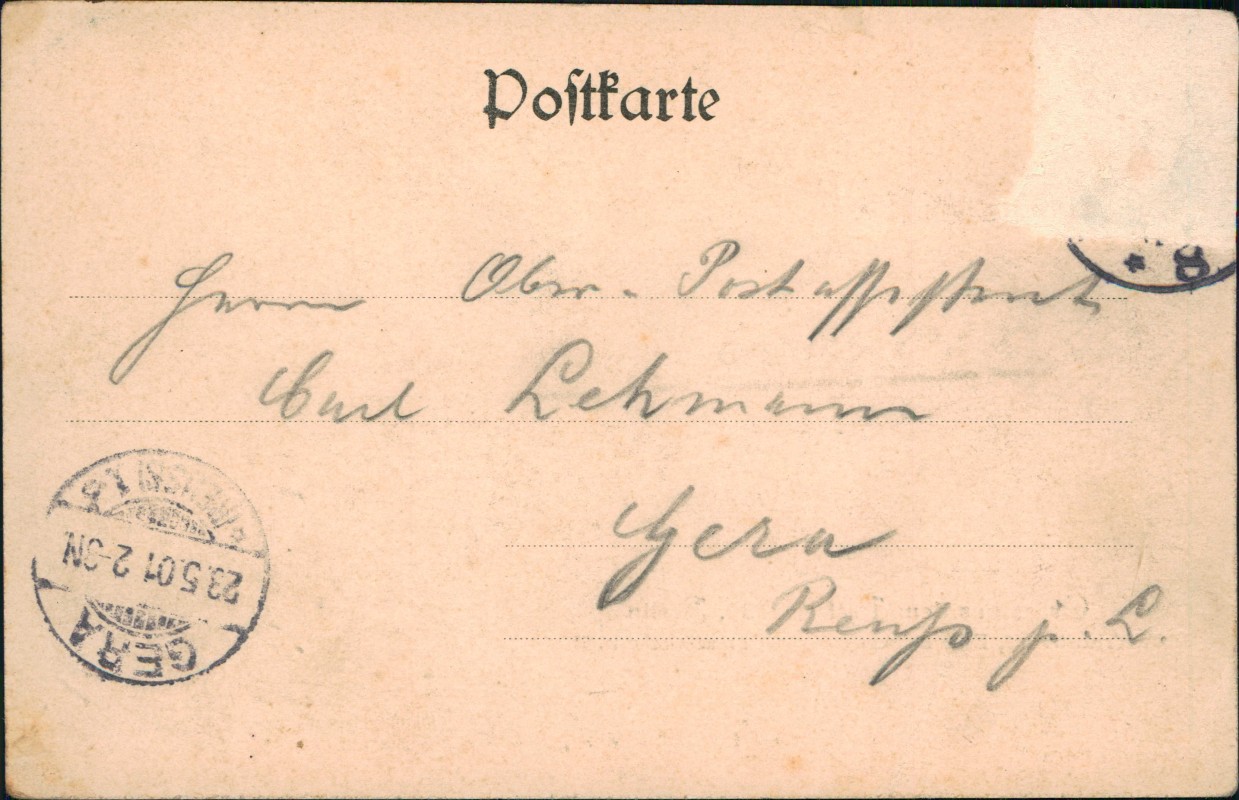 Postkarte
Herrn Ober-Postassistent
Carl Lehmann
Gera
Reuß j. L.
GERA
23.5.01 2-3N
(REUSS)